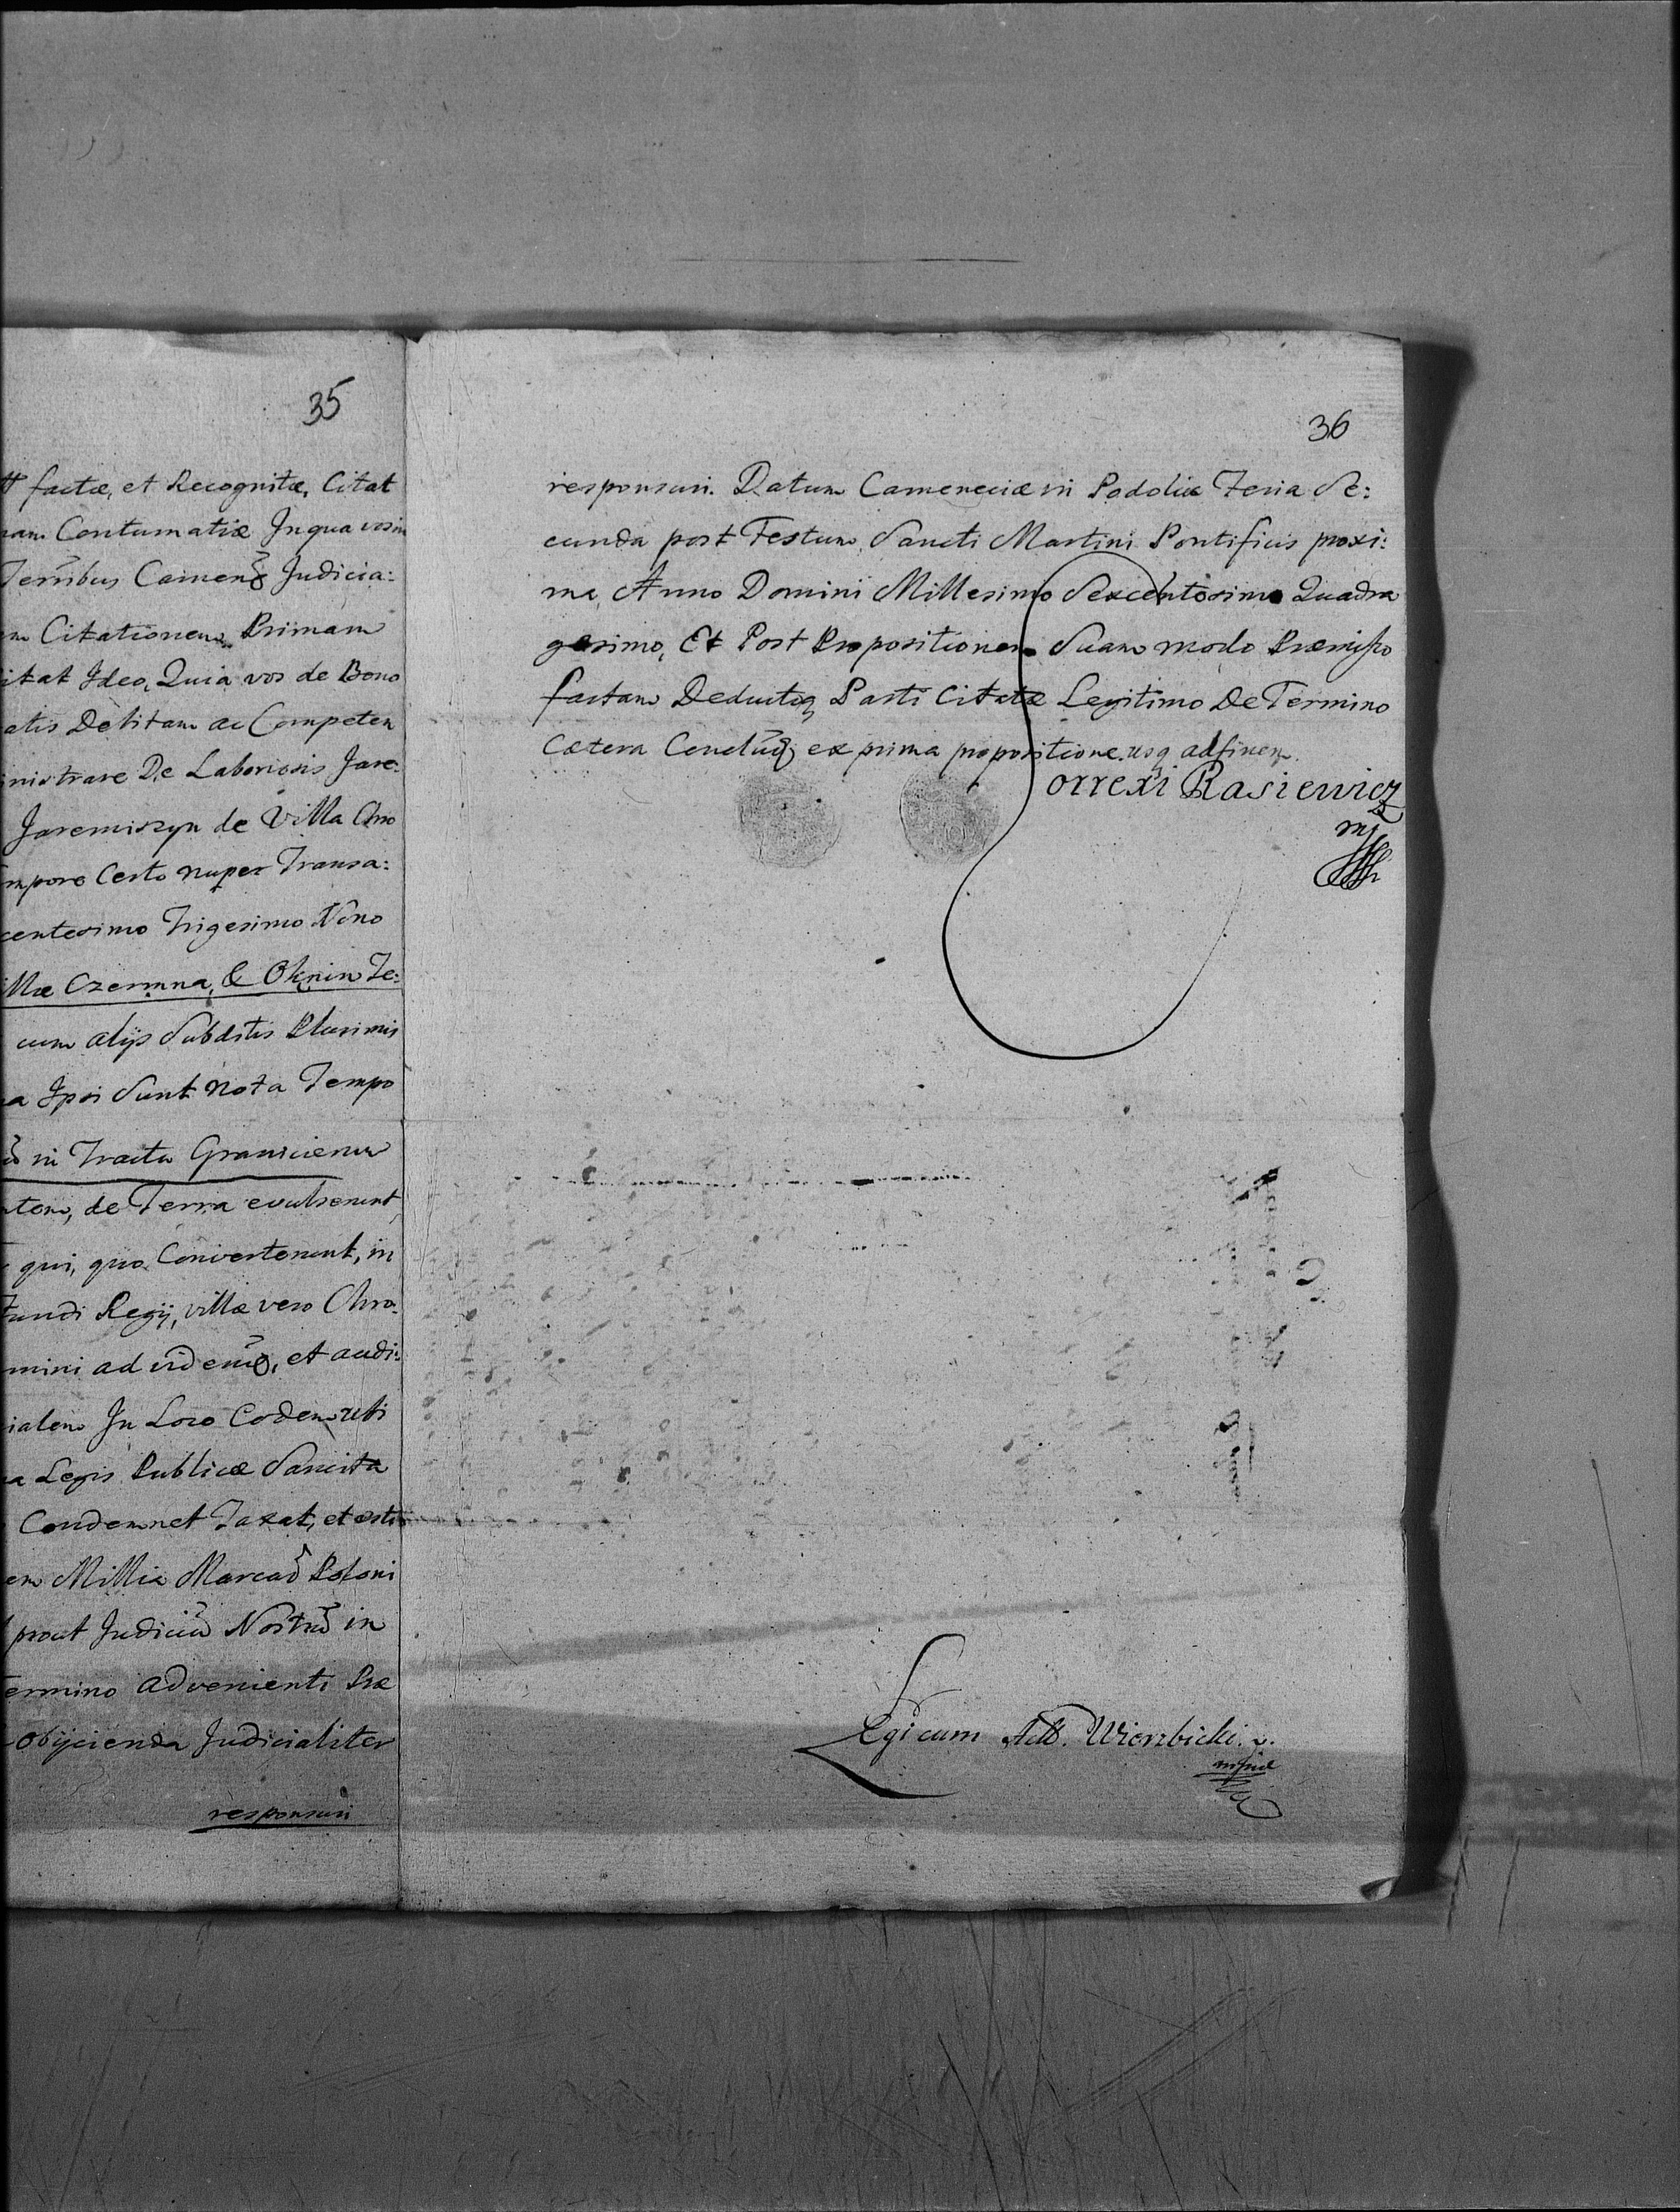 35
factæ, et Recognitæ, Citat
Contumatiæ Jn qua vos in
Judicia:
Citationem Primam
Ideo, Quia vos de Bono
Debitam ac Competen
De Laboriosis Jare:
Jaremiszyn de Villa Chro
Certo nuper Transa:
centesimo Trigesimo Nono
Czermna, & Oknin Te:
cum alijs Subditis Plurimis
Ipsi Sunt Nota Tempo
in Tractu Graniciem
de Terra evulserunt
qui, quo Converterunt, in
Fundi Regij, villæ vero Chro:
ad et audi:
In Loco Eodem ubi
Legis Publicæ Sancita
Condemnet Taxat, et esti
Millia Marcaru Poloni
prout Judiciu Nostru in
Termino advenienti Præ
obijcienda Judicialiter
responsuri
36
responsuri. Datum Cameneciæ in Podolia Feria Se:
cunda post Festum Sancti Martini Pontificis proxi:
ma, Anno Domini Millesimo Sexcentesimo Quadra
gesimo, Et Post Propositionem Suam modo Præmisso
factam Deductoq Parti Citatæ Legitimo De Termino
Cætera ex prima propositione usq ad finem.
Correxi Rasiewicz
mp
Legi cum Actt. Wierzbicki
mpria